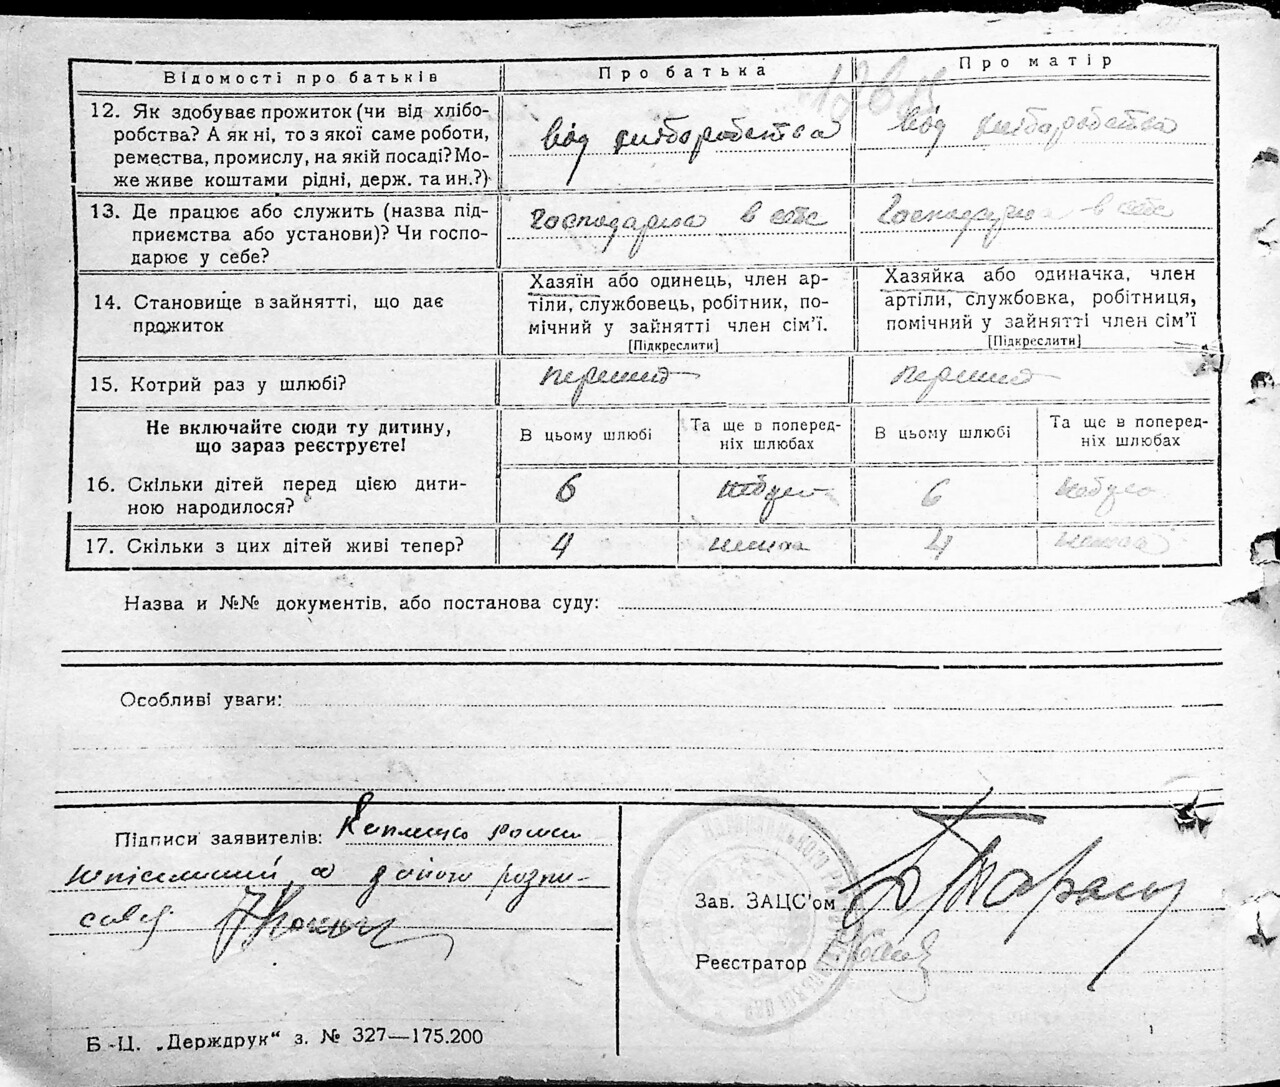 Відомості про батьків
Про батька
Про матір
12. Як здобуває прожиток (чи від хлібо-
робства? А як ні, то з якої саме роботи,
ремества, промислу, на якій посаді? Мо-
же живе коштами рідні, держ. та ин.?)
від хліборобства
від хліборобства
13. Де працює або служить (назва під-
приємства або установи)? Чи госпо-
дарює у себе?
Господарює в себе
Господарює в себе
14. Становище в зайнятті, що дає
прожиток
Хазяїн або одинець, член ар-
тіли, службовець, робітник, по-
мічний у зайнятті член сім'ї.
[Підкреслити]
Хазяйка або одиначка, член
артіли, службовка, робітниця,
помічний у зайнятті член сім'ї
[Підкреслити]
15. Котрий раз у шлюбі?
перший
перший
Не включайте сюди ту дитину,
що зараз реєструєте!
В цьому шлюбі
Та ще в поперед-
ніх шлюбах
В цьому шлюбі
Та ще в поперед-
ніх шлюбах
16. Скільки дітей перед цією дити-
ною народилося?
6
небуло
6
небуло
17. Скільки з цих дітей живі тепер?
4
немає
4
немає
Назва и №№ документів, або постанова суду:
Особливі уваги:
Підписи заявителів:
а за його розпи-
Зав. ЗАЦС'ом
Реєстратор
Б.-Ц. „Держдрук“ з. № 327—175.200